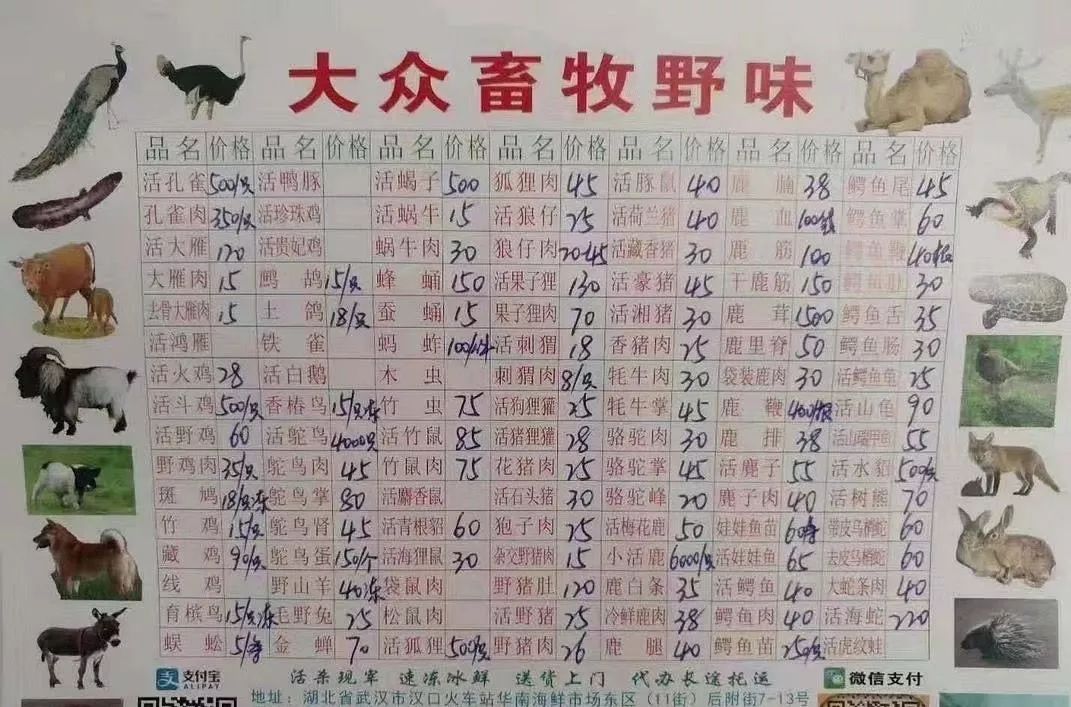 大众畜牧野味
品名 价格 品名 价格 品名 价格 品名 价格 品名 价格 品名 价格 品名 价格
活孔雀 500/只 活鸭豚 活蝎子 500 狐狸肉 45 活豚鼠 40 鹿腩 38 鳄鱼尾 45
孔雀肉 350/只 活珍珠鸡 活蜗牛 15 活狼仔 25 活荷兰猪 40 鹿血 鳄鱼掌 60
活大雁 120 活贵妃鸡 蜗牛肉 30 狼仔肉 活藏香猪 30 鹿筋 100 鳄鱼鞭
大雁肉 15 鹧鸪 15/只 蜂蛹 150 活果子狸 130 活豪猪 45 干鹿筋 150 鳄鱼肚 30
去骨大雁肉 15 土鸽 18/只 蚕蛹 15 果子狸肉 70 活湘猪 30 鹿茸 1500 鳄鱼舌 35
活鸿雁 铁雀 蚂蚱 活刺猬 18 香猪肉 25 鹿里脊 50 鳄鱼肠 30
活火鸡 28 活白鹅 木虫 刺猬肉 8/只 牦牛肉 30 袋装鹿肉 30 活鳄鱼龟 25
活斗鸡 500/只 香椿鸟 15/只冻 竹虫 75 活狗狸獾 25 牦牛掌 45 鹿鞭 活山龟 90
活野鸡 60 活鸵鸟 4000只 活竹鼠 85 活猪狸獾 28 骆驼肉 30 鹿排 38 55
野鸡肉 35/只 鸵鸟肉 45 竹鼠肉 75 花猪肉 25 骆驼掌 45 活麂子 55 活水貂 500/只
斑鸠 18/只冻 鸵鸟掌 80 活麝香鼠 活石头猪 30 骆驼峰 20 麂子肉 40 活树熊 70
竹鸡 15/只 鸵鸟肾 45 活青根貂 60 狍子肉 25 活梅花鹿 50 娃娃鱼苗 带皮乌梢蛇 60
藏鸡 90/只 鸵鸟蛋 150/个 活海狸鼠 30 杂交野猪肉 15 小活鹿 6000/只 活娃娃鱼 65 去皮乌梢蛇 60
线鸡 野山羊 40冻 袋鼠肉 野猪肚 120 鹿白条 35 活鳄鱼 40 大蛇条肉 40
育槟鸟 15/只冻 毛野兔 25 松鼠肉 活野猪 25 冷鲜鹿肉 38 鳄鱼肉 40 活海蛇 220
蜈蚣 金蝉 70 活狐狸 500/只 野猪肉 26 鹿腿 40 鳄鱼苗 250/只 活虎纹蛙
支付宝 ALIPAY 活杀现宰 速冻冰鲜 送货上门 代办长途托运 微信支付
地址：湖北省武汉市汉口火车站华南海鲜市场东区（11街）后附街7-13号